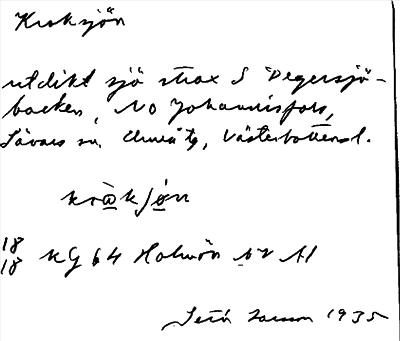 Kroksjön
utdikt sjö strax S Degersjö-
backen, NO Johannisfors,
Sävars sn, Umeå tg, Västerbottens l.
kròksjøn
18
18 KG 64 Holmön NV A1
Setú Larsson 1935